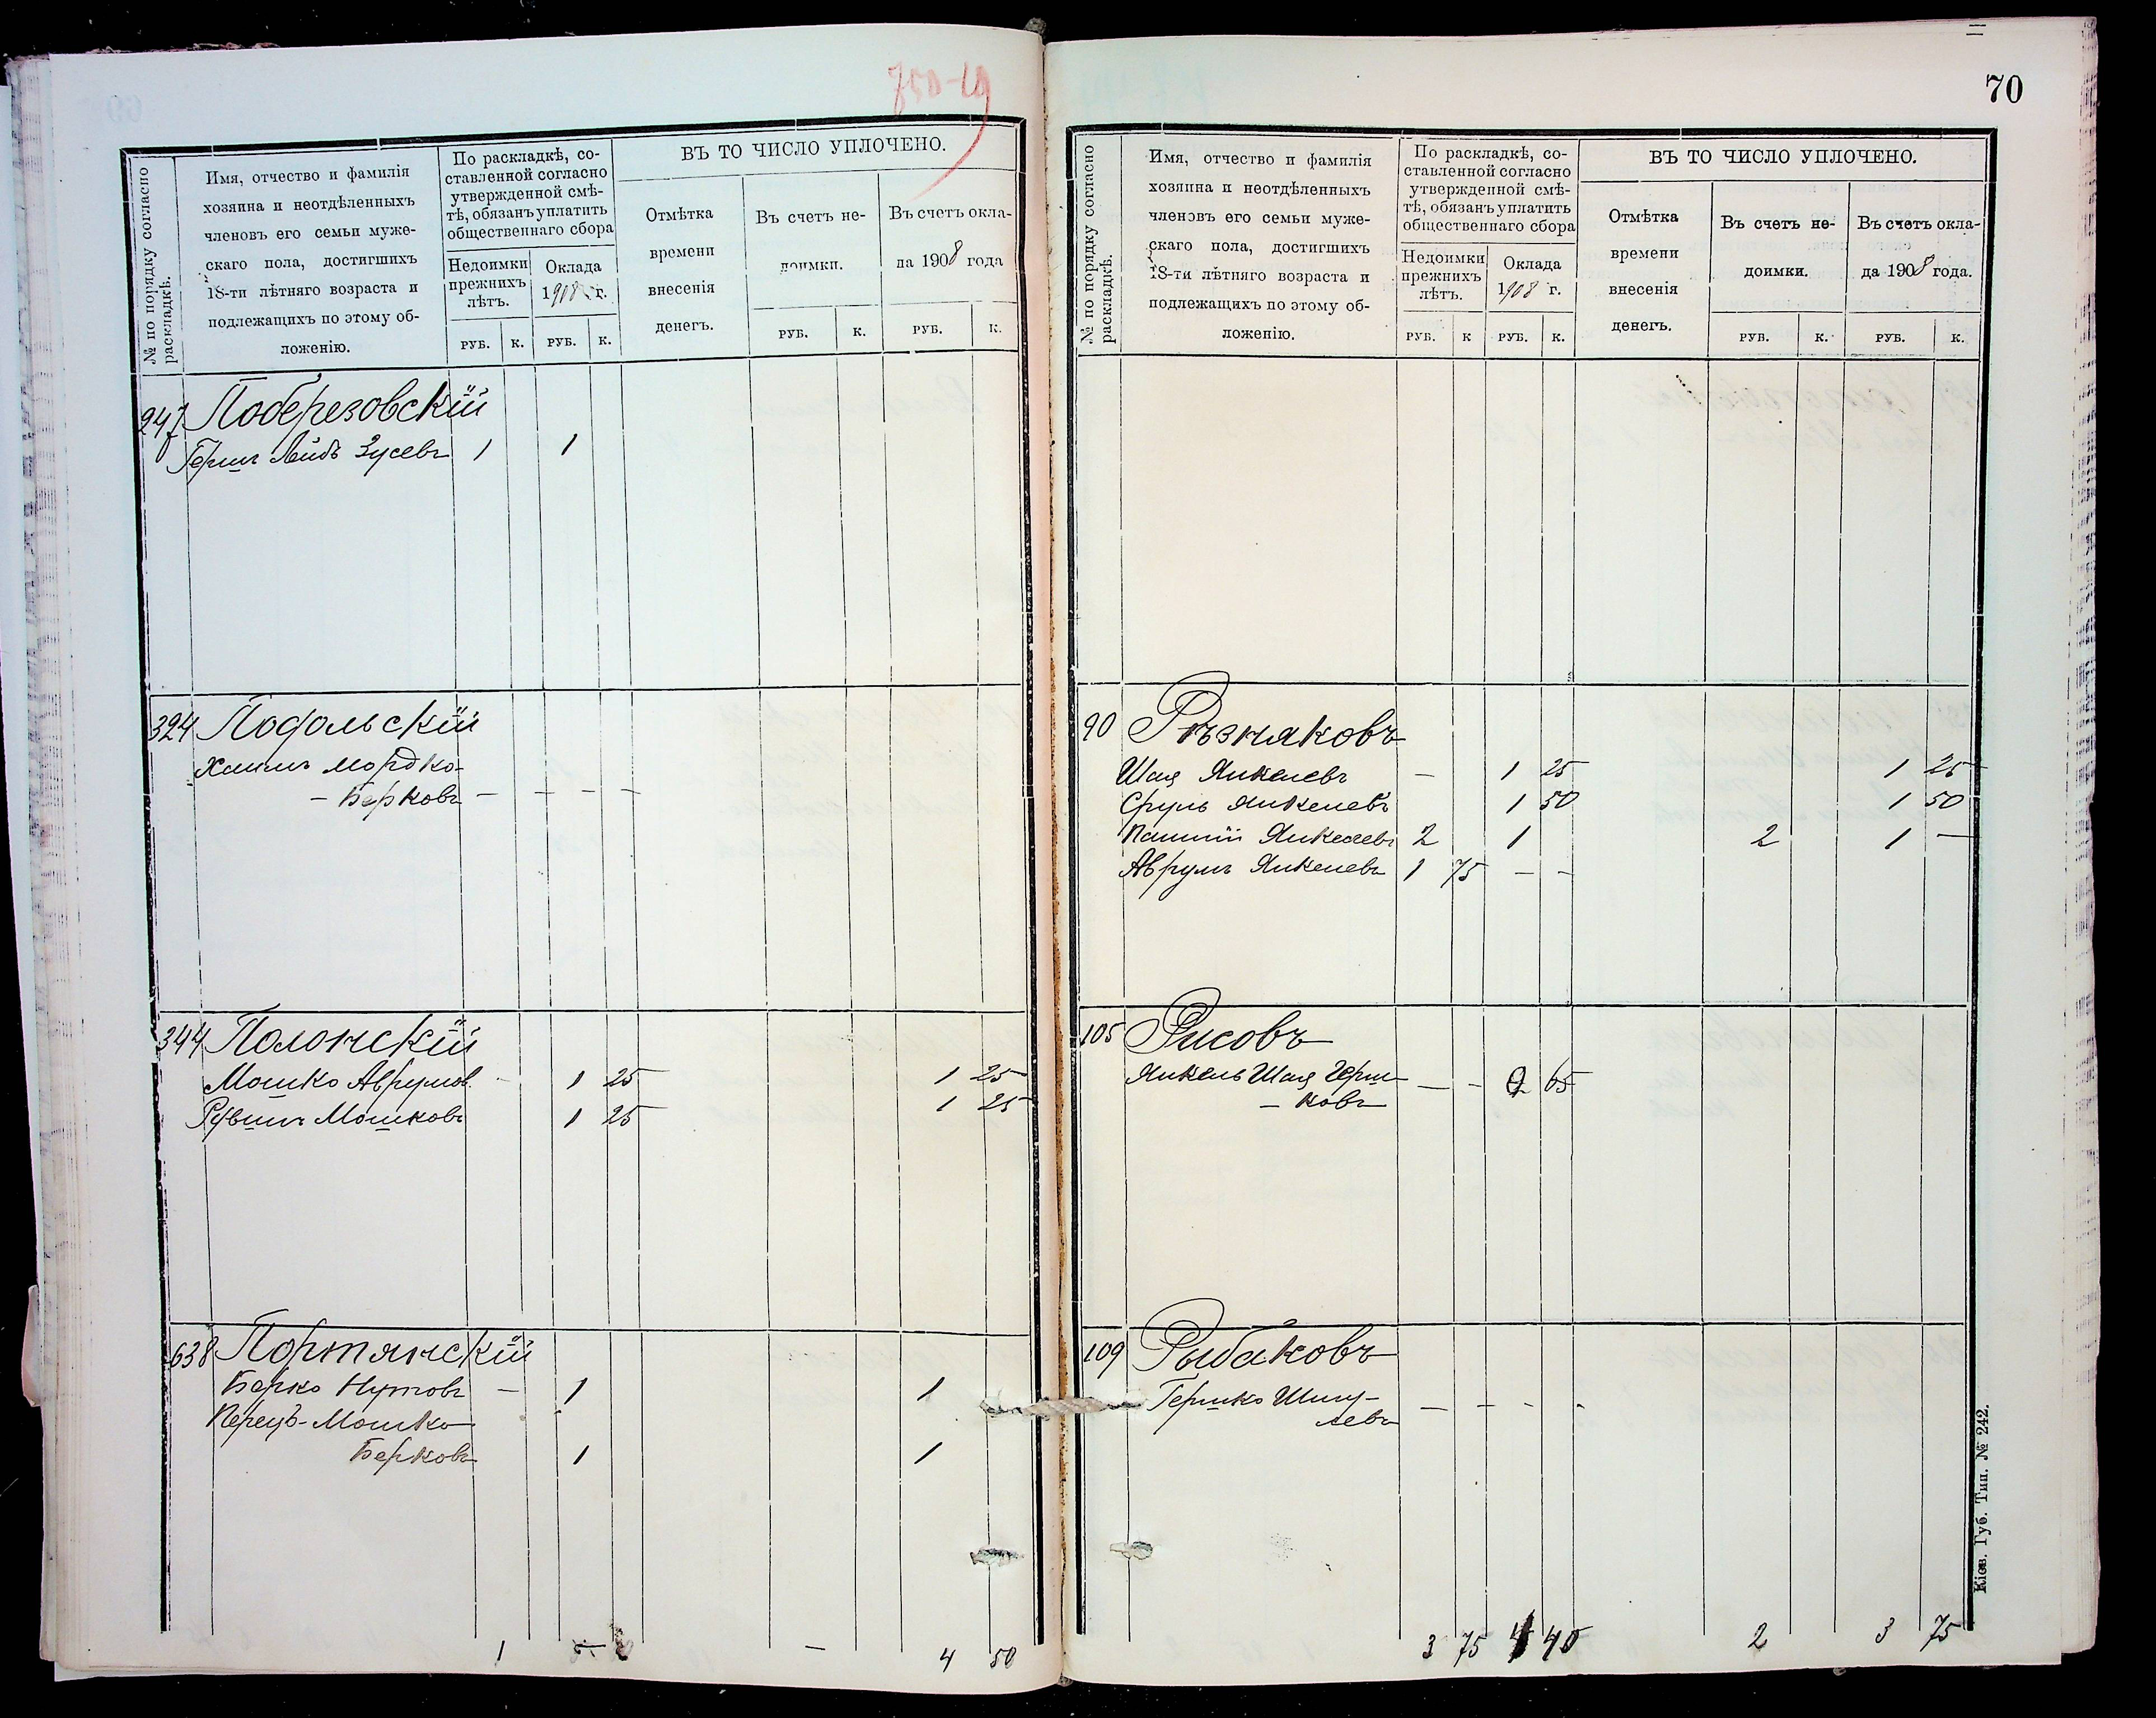 750-19
№ по порядку согласно
раскладкѣ.
Имя, отчество и фамилія
хозяина и неотдѣленныхъ
членовъ его семьи муже-
скаго пола, достигшихъ
18-ти лѣтняго возраста и
подлежащихъ по этому об-
ложенію.
По раскладкѣ, со-
ставленной согласно
утвержденной смѣ-
тѣ, обязанъ уплатить
общественнаго сбора
Недоимки
прежнихъ
лѣтъ.
Оклада
1908 г.
ВЪ ТО ЧИСЛО УПЛОЧЕНО.
Отмѣтка
времени
внесенія
денегъ.
Въ счетъ не-
доимки.
Въ счетъ окла-
да 1908 года
РУБ. К. РУБ. К. РУБ. К. РУБ. К.
247 Поберезовскій
Герш Лейбъ Зусевъ 1 1
324 Подольскій
Хаимъ Мордко-
- Берковъ - - - -
344 Полонскій
Мошко Аврумов. - 1 25 1 25
Рувинъ Мошковъ 1 25 1 25
638 Портянскій
Берко Нутовъ - 1 1
Перецъ-Мошко
Берковъ 1 1
1 - 4 50
70
№ по порядку согласно
раскладкѣ.
Имя, отчество и фамилія
хозяина и неотдѣленныхъ
членовъ его семьи муже-
скаго пола, достигшихъ
18-ти лѣтняго возраста и
подлежащихъ по этому об-
ложенію.
По раскладкѣ, со-
ставленной согласно
утвержденной смѣ-
тѣ, обязанъ уплатить
общественнаго сбора
Недоимки
прежнихъ
лѣтъ.
Оклада
1908 г.
ВЪ ТО ЧИСЛО УПЛОЧЕНО.
Отмѣтка
времени
внесенія
денегъ.
Въ счетъ не-
доимки.
Въ счетъ окла-
да 1908 года.
РУБ. К РУБ. К. РУБ. К. РУБ. К.
90 Рѣзняковъ
Шая Янкелевъ - 1 25 1 25
Сруль Янкелевъ 1 50 1 50
Янкелевъ 2 1 2 1 -
Аврумъ Янкелевъ 1 75 - -
105 Рисовъ
Янкель Шая Герш-
- ковъ - - 65
109 Рыбаковъ
Гершко Шму-
левъ - - - -
3 75 4 40 2 3 75
Кіев. Губ. Тип. № 242.